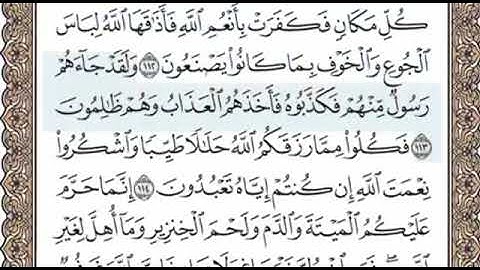 كُلِّ مَكَانٍ فَكَفَرَتْ بِأَنْعُمِ ٱللَّهِ فَأَذَٰقَهَا ٱللَّهُ لِبَاسَ
ٱلْجُوعِ وَٱلْخَوْفِ بِمَا كَانُوا۟ يَصْنَعُونَ ١١٢ وَلَقَدْ جَآءَهُمْ
رَسُولٌ مِّنْهُمْ فَكَذَّبُوهُ فَأَخَذَهُمُ ٱلْعَذَابُ وَهُمْ ظَٰلِمُونَ
١١٣ فَكُلُوا۟ مِمَّا رَزَقَكُمُ ٱللَّهُ حَلَٰلًا طَيِّبًا وَٱشْكُرُوا۟
نِعْمَتَ ٱللَّهِ إِن كُنتُمْ إِيَّاهُ تَعْبُدُونَ ١١٤ إِنَّمَا حَرَّمَ
عَلَيْكُمُ ٱلْمَيْتَةَ وَٱلدَّمَ وَلَحْمَ ٱلْخِنزِيرِ وَمَآ أُهِلَّ لِغَيْرِ